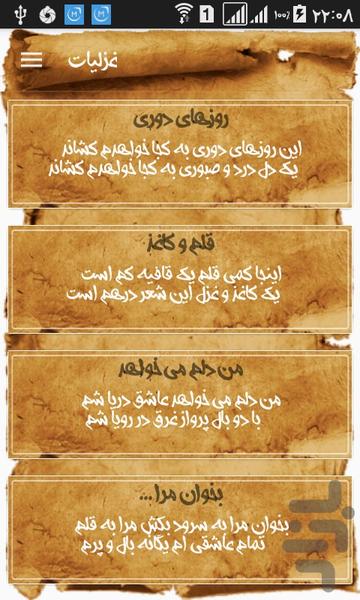 ۲۲:۰۸
۱۰۰٪
1
غزلیات
روزهای دوری
این روزهای دوری به کجا خواهدم کشاند
یک دل درد و صبوری به کجا خواهدم کشاند
قلم و کاغذ
اینجا کمی قلم یک قافیه کم است
یک کاغذ و غزل این شعر درهم است
من دلم می خواهد
من دلم می خواهد عاشق دریا شم
با دو بال پرواز غرق در رویا شم
بخوان مرا...
بخوان مرا به سرود بکش مرا به قلم
تمام عاشقی ام یگانه بال و پرم
بازار